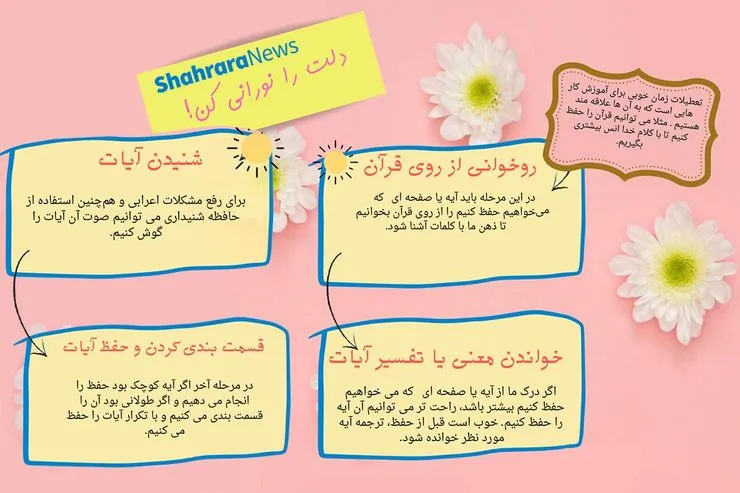 ShahraraNews
دلت را نورانی کن!
تعطیلات زمان خوبی برای آموزش کار
هایی است که به آن ها علاقه مند
هستیم . مثلا می توانیم قرآن را حفظ
کنیم تا با کلام خدا انس بیشتری
بگیریم.
روخوانی از روی قرآن
در این مرحله باید آیه یا صفحه ای که
می‌خواهیم حفظ کنیم را از روی قرآن بخوانیم
تا ذهن ما با کلمات آشنا شود.
خواندن معنی یا تفسیر آیات
اگر درک ما از آیه یا صفحه ای که می خواهیم
حفظ کنیم بیشتر باشد، راحت تر می توانیم آن آیه
را حفظ کنیم. خوب است قبل از حفظ، ترجمه آیه
مورد نظر خوانده شود.
شنیدن آیات
برای رفع مشکلات اعرابی و هم‌چنین استفاده از
حافظه شنیداری می توانیم صوت آن آیات را
گوش کنیم.
قسمت بندی کردن و حفظ آیات
در مرحله آخر اگر آیه کوچک بود حفظ را
انجام می دهیم و اگر طولانی بود آن را
قسمت بندی می کنیم و با تکرار آیات را حفظ
می کنیم.